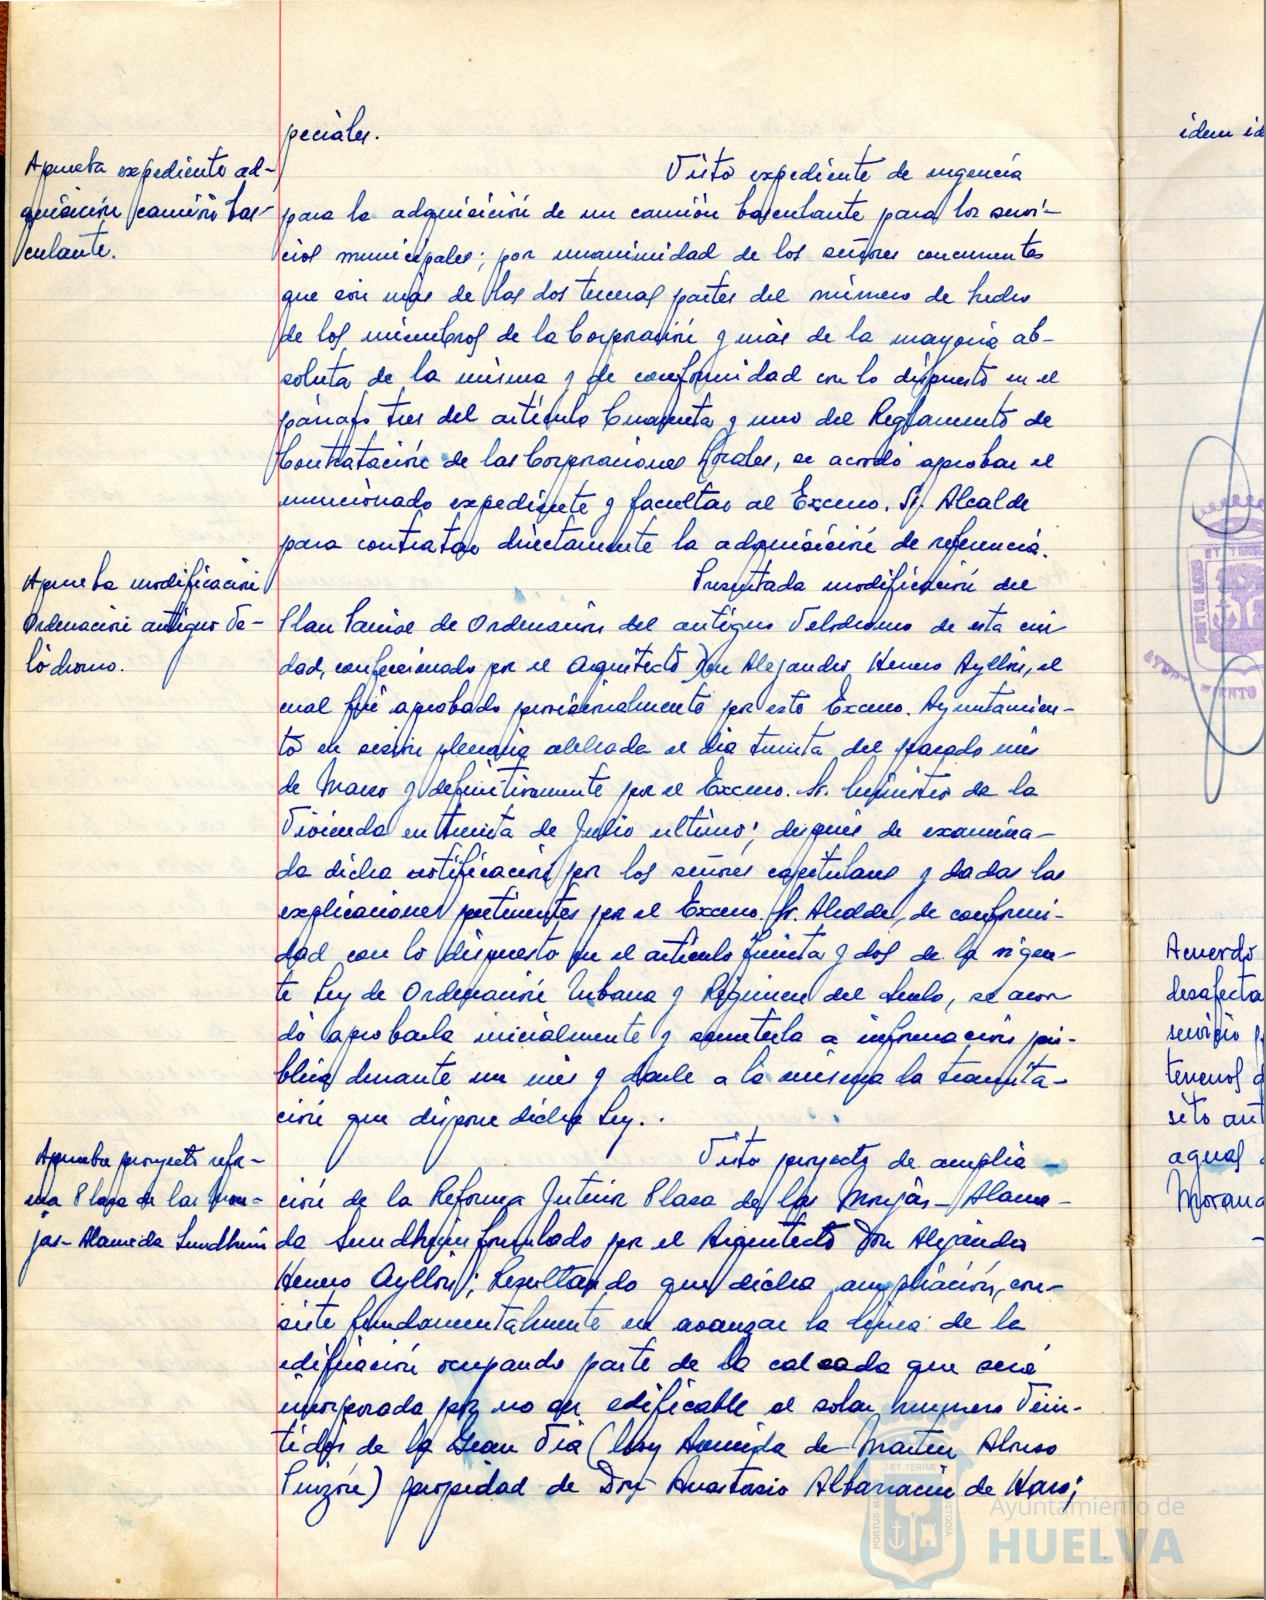 peciales.
Aprueba expediente ad-
quisición camión bas-
culante.
Visto expediente de urgencia
para la adquisición de un camión basculante para los servi-
cios municipales; por unanimidad de los señores concurrentes
que son más de las dos terceras partes del número de hecho
de los miembros de la Corporación y más de la mayoría ab-
soluta de la misma y de conformidad con lo dispuesto en el
párrafo tres del artículo Cuarenta y uno del Reglamento de
Contratación de las Corporaciones Locales, se acordó aprobar el
mencionado expediente y facultar al Excmo. Sr. Alcalde
para contratar directamente la adquisición de referencia.
Aprueba modificación
Ordenación antiguo Ve-
lódromo.
Presentada modificación del
Plan Parcial de Ordenación del antiguo Velódromo de esta ciu
dad, confeccionado por el Arquitecto Don Alejandro Herrero Ayllón, el
cual fué aprobado provisionalmente por este Excmo. Ayuntamien-
to en sesión plenaria celebrada el día treinta del pasado mes
de Marzo y definitivamente por el Excmo. Sr. Ministro de la
Vivienda en treinta de Julio último; después de examina-
da dicha notificación por los señores capitulares y dadas las
explicaciones pertinentes por el Excmo. Sr. Alcalde, de conformi-
dad con lo dispuesto en el artículo treinta y dos de la vigen-
te Ley de Ordenación Urbana y Régimen del Suelo, se acor
dó aprobarla inicialmente y someterla a información pú-
blica durante un mes y darle a la misma la tramita-
ción que dispone dicha Ley..
Aprueba proyecto refor-
ma Plaza de las Mon-
jas-Alameda Sundheim
Visto proyecto de amplia-
ción de la Reforma Interior Plaza de las Monjas-Alame-
da Sundheim formulado por el Arquitecto Don Alejandro
Herrero Ayllón; Resultando que dicha ampliación, con-
siste fundamentalmente en avanzar la línea de la
edificación ocupando parte de la calzada que será
incorporada por no ser edificable al solar número Vein-
tidos de la Gran Vía (hoy Avenida de Martín Alonso
Pinzón) propiedad de Don Anastasio Albarracín de Haro;
idem id
Acuerdo
desafecta
servicio p
terrenos d
sito ant
aguas
Morana
Ayuntamiento de
HUELVA